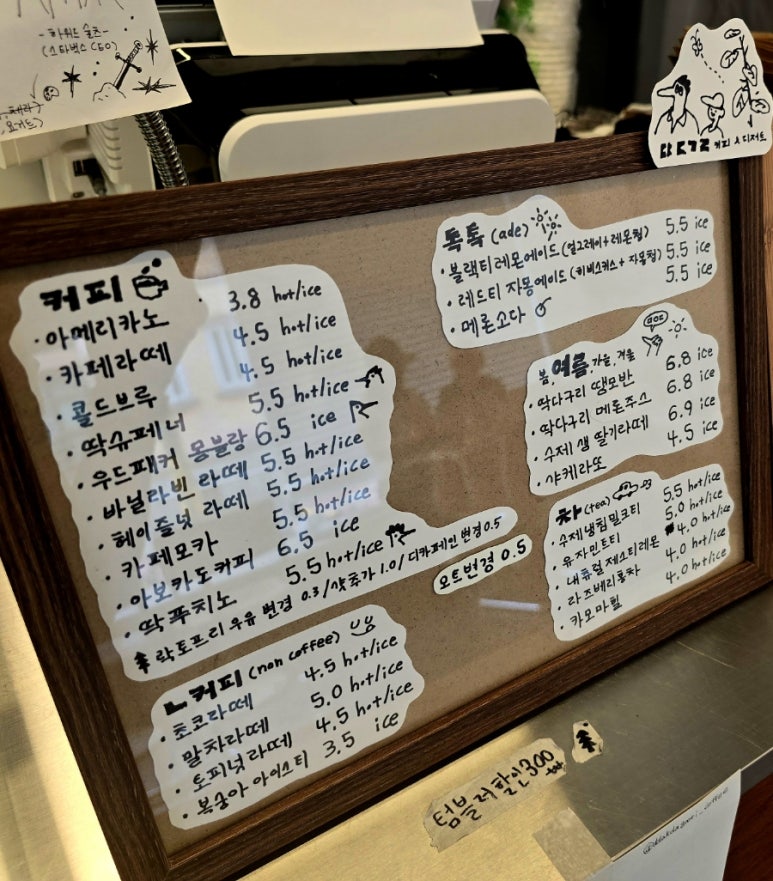 - 하워드 슐츠 -
(스타벅스 CEO)
커피 & 디저트
커피
· 아메리카노 3.8 hot/ice
· 카페라떼 4.5 hot/ice
· 콜드브루 4.5 hot/ice
· 딱슈페너 5.5 hot/ice
· 우드패커 몽블랑 6.5 ice
· 바닐라빈 라떼 5.5 hot/ice
· 헤이즐넛 라떼 5.5 hot/ice
· 카페모카 5.5 hot/ice
· 아보카도커피 6.5 ice
· 딱푸치노 5.5 hot/ice
락토프리 우유 변경 0.3 / 샷추가 1.0 / 디카페인 변경 0.5
오트변경 0.5
ㄴ커피 (non coffee)
· 초코라떼 4.5 hot/ice
· 말차라떼 5.0 hot/ice
· 토피넛라떼 4.5 hot/ice
· 복숭아 아이스티 3.5 ice
톡톡 (ade)
· 블랙티레몬에이드 (얼그레이+레몬청) 5.5 ice
· 레드티 자몽에이드 (히비스커스+자몽청) 5.5 ice
· 메론소다 5.5 ice
봄, 여름, 가을, 겨울
· 딱다구리 땡모반 6.8 ice
· 딱다구리 메론주스 6.8 ice
· 수제 생 딸기라떼 6.9 ice
· 샤케라또 4.5 ice
차 (tea)
· 수제냉침밀크티 5.5 hot/ice
· 유자민트티 5.0 hot/ice
· 내츄럴 제스티레몬 4.0 hot/ice
· 라즈베리홍차 4.0 hot/ice
· 카모마일 4.0 hot/ice
텀블러할인 300₩